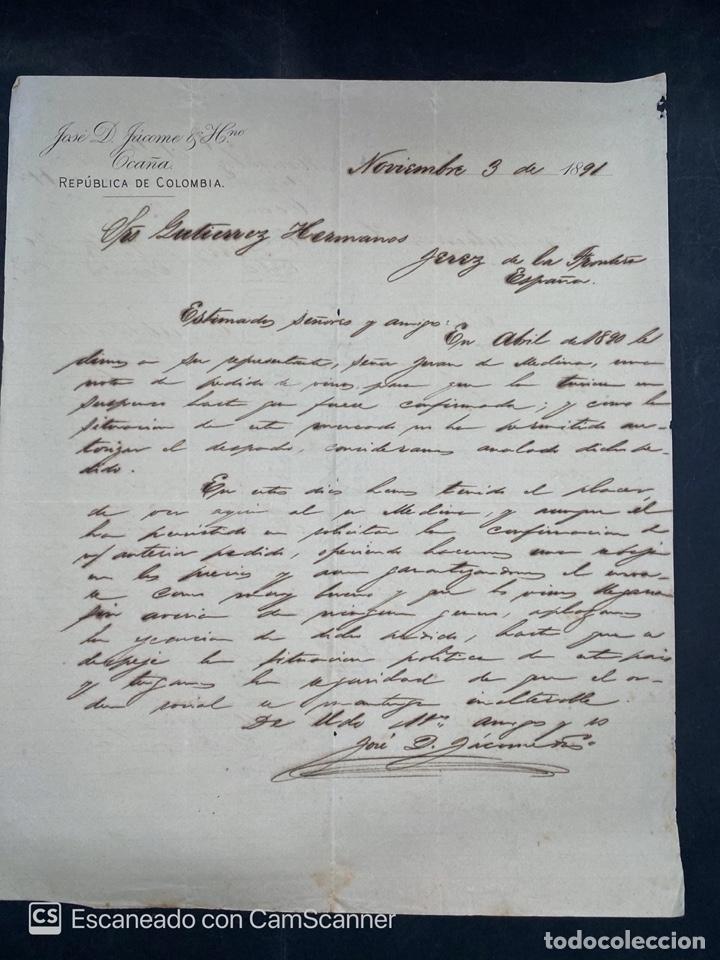 José D. Jácome & Hno
Ocaña.
REPÚBLICA DE COLOMBIA.
Noviembre 3 de 1891
Srs Gutierrez Hermanos
Jerez de la Frontera
España.
Estimados señores y amigos: En Abril de 1890 le
dimos a su representante, señor Juan de Medina, una
nota de pedido de vinos para que la tuviera en
suspenso hasta que fuese confirmada; y como la
situacion de este mercado no ha permitido au-
torizar el despacho, consideramos anulado dicho pe-
dido.
En estos dias hemos tenido el placer
de ver aqui al sr Medina, y aunque él
ha persistido en solicitar la confirmacion de
n/ anterior pedido, ofreciendo hacernos una rebaja
en los precios y aun garantizandonos el envase
como muy bueno y que los vinos llegaran
sin averia de ningun genero, aplazamos
la ejecucion de dicho pedido, hasta que se
despeje la situacion politica de este pais
y tengamos la seguridad de que el or-
den social se mantenga inalterable.
De Uds. amigos y ss
José D. Jácome & Hno
CS Escaneado con CamScanner
todocoleccion